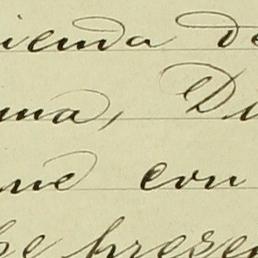 ienda de
ma, Di
ne con
he presen